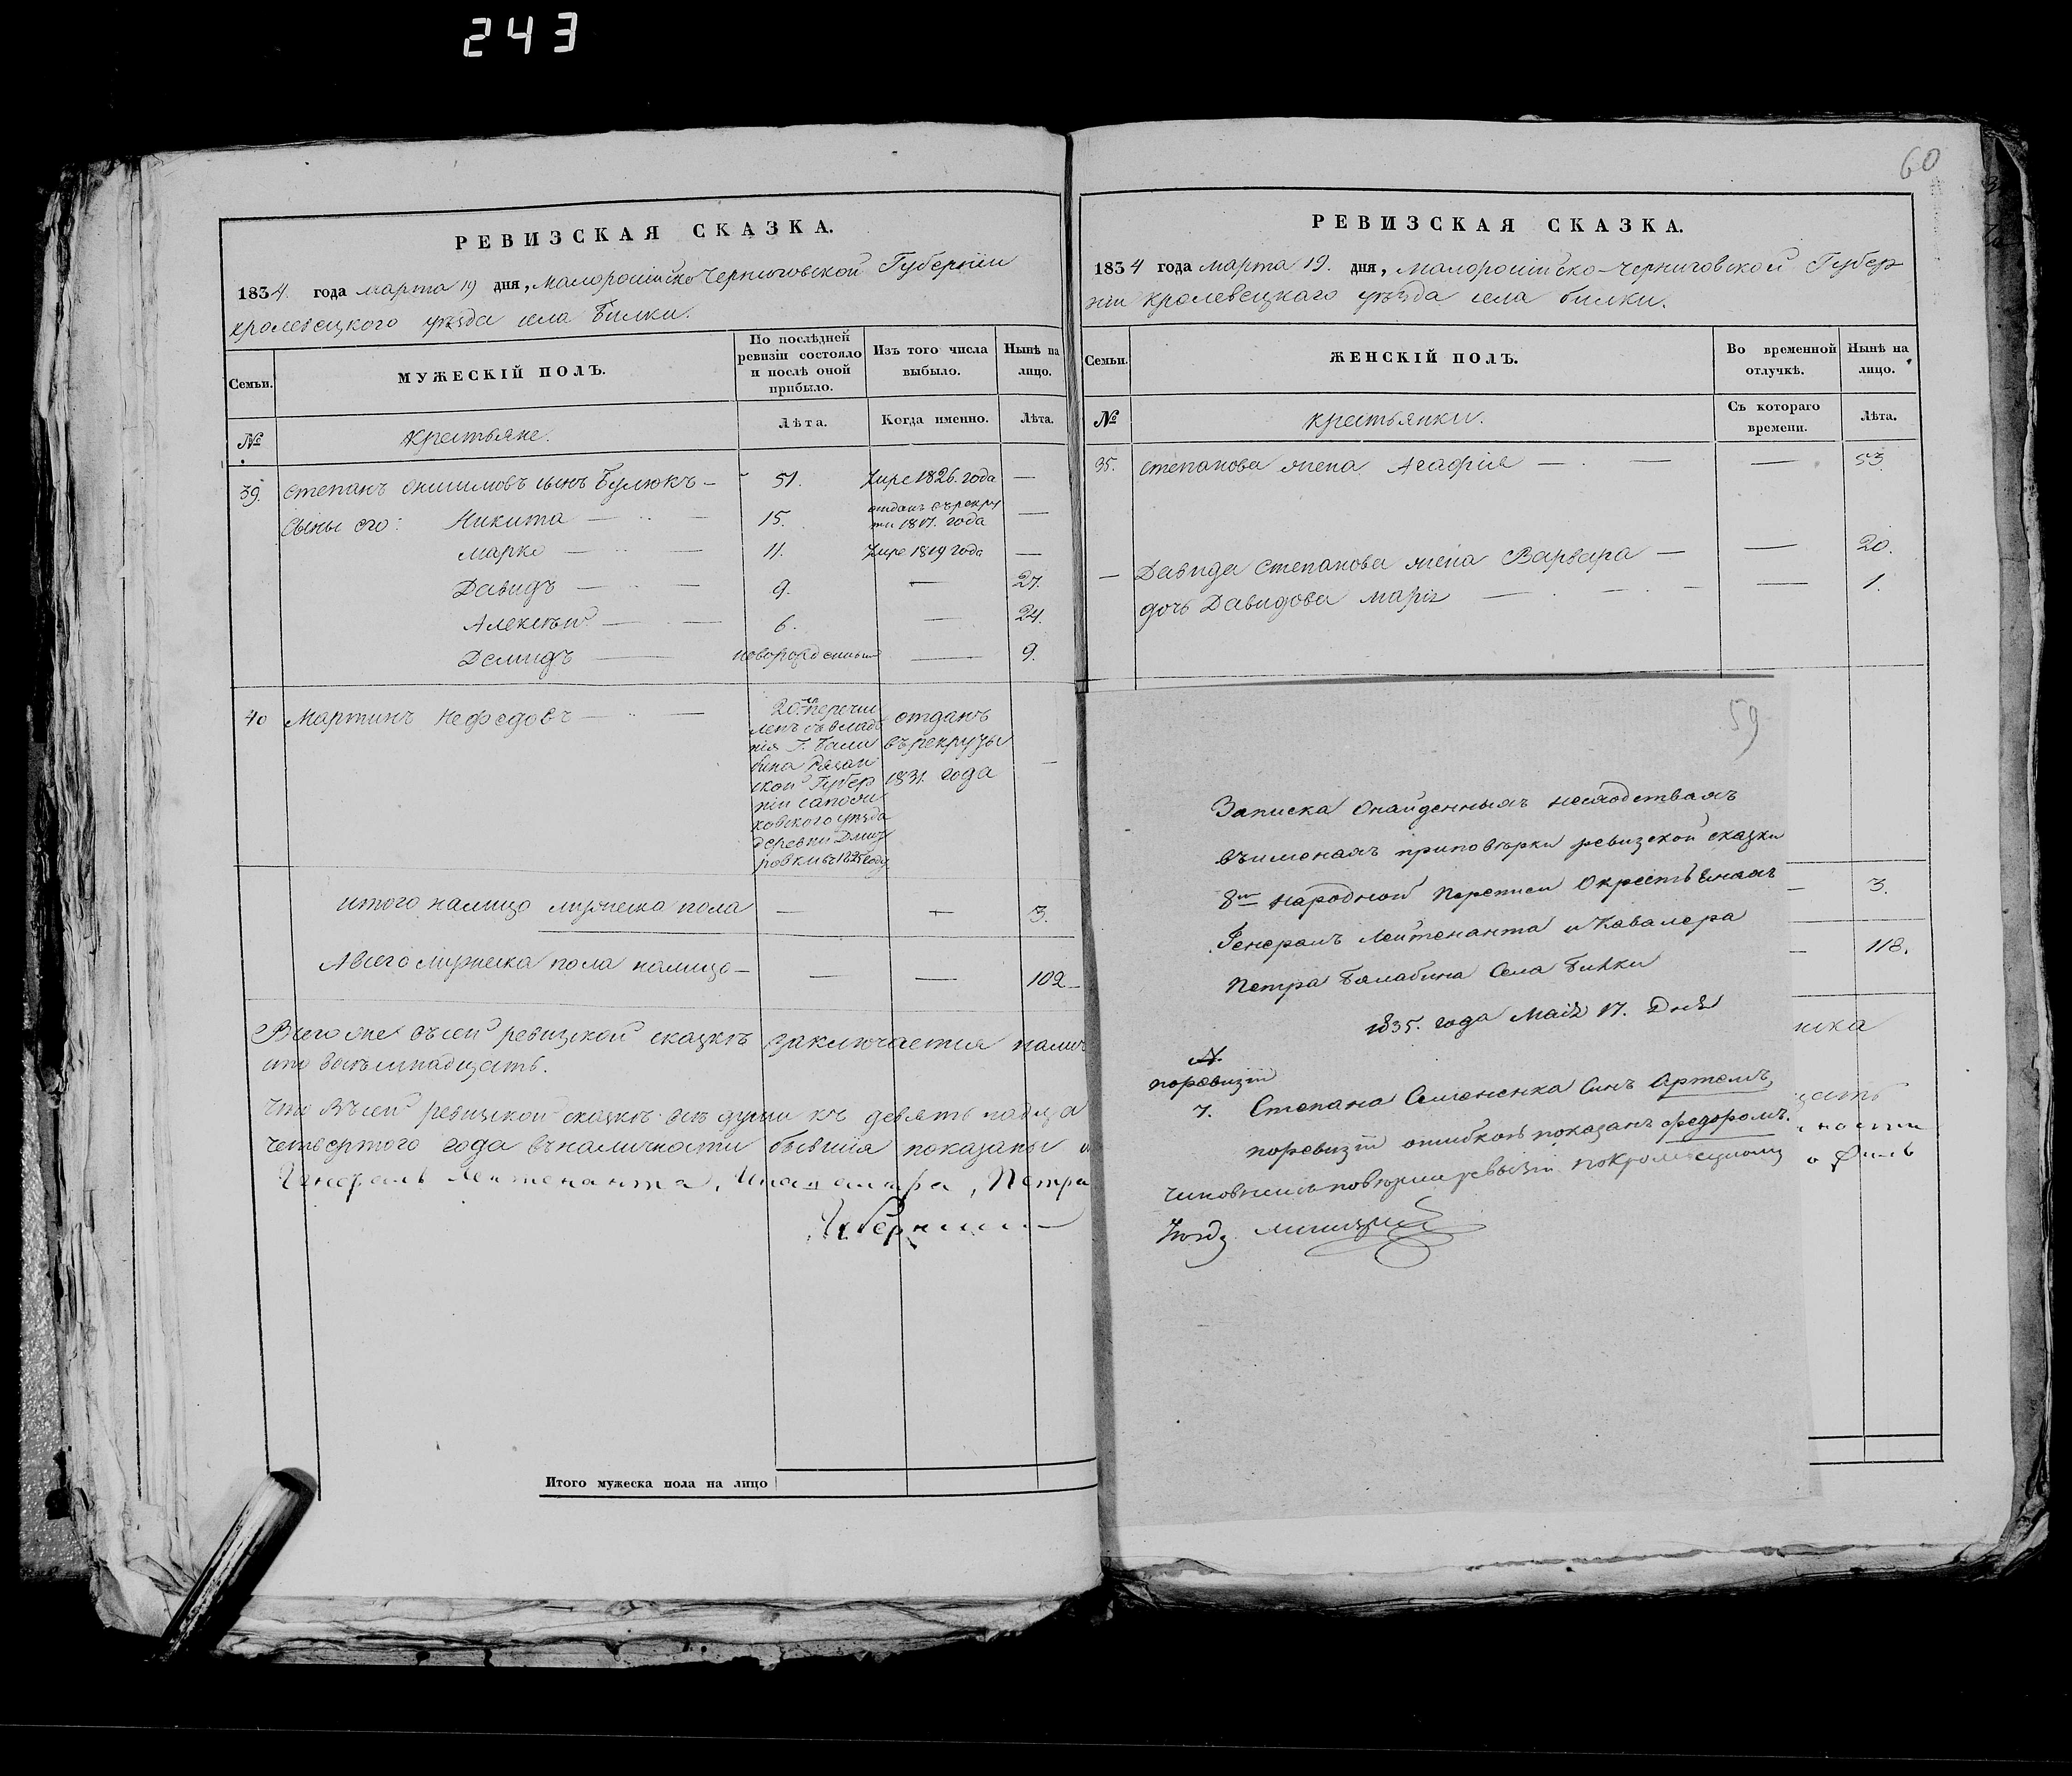 243
РЕВИЗСКАЯ СКАЗКА.
1834. года марта 19 дня, малоросiйско Черниговской Губернiи
кролевецкого уезда села Билки.
Семьи.
МУЖЕСКIЙ ПОЛЪ.
По послѣдней ревизiи состояло и послѣ оной прибыло.
Изъ того числа выбыло.
Нынѣ на лицо.
№
крестьяне.
Лѣта.
Когда именно.
Лѣта.
39. степанъ онисимовъ сынъ Булюкъ — 51. Умре 1826. года —
сыны его: Никита — 15. отданъ въ рекруты 1817. года —
марко — 11. Умре 1819 года —
Давидъ — 9. — 27.
Алексѣй — 6. — 24.
Демидъ — новорожденный — 9.
40 Мартинъ Нефедовъ —
20. перечи
ленъ съ владѣ
нiя Г. Бала
бина Рязан
ской Губер
нiи сапож
ковского уезда
деревни Дмит
ровки въ 1825 году
отданъ
въ рекруты
1831. года
—
итого налицо мужеска пола — — 3.
А всего мужеска пола налицо — — — 102
Всего же въ сей ревизской сказкѣ заключается налич
сто восемнадцать.
Что въ сей ревизской сказкѣ всѣ души къ девятнадца
четвертого года въ наличности бывшiя показаны
Генералъ Лейтенанта, Петра
Губернiи
Итого мужеска пола на лицо
60
РЕВИЗСКАЯ СКАЗКА.
1834 года марта 19. дня, малоросiйско-черниговской Губер
нiи кролевецкаго уѣзда села билки.
Семьи.
ЖЕНСКIЙ ПОЛЪ.
Во временной отлучкѣ.
Нынѣ на лицо.
№
крестьянки.
Съ котораго времени.
Лѣта.
35. степанова жена Агафiя — — 53.
— Давида степанова жена Варвара — — 20.
дочь Давидова марiя — — 1.
— 3.
— 118.
59
Записка онайденныхъ несходствахъ
въименахъ приповѣрки ревизской сказки
8й народной переписи окрестьянахъ
Генералъ Лейтенанта и Кавалера
Петра Балабина Села Билки
1835. года Маiя 17. Дня
№
поревизiи
7. Степана Семененка Синъ Артемъ,
поревизiи ошибкою показанъ федоромъ.
чиновникъ повѣрки ревызiи покролевецкому